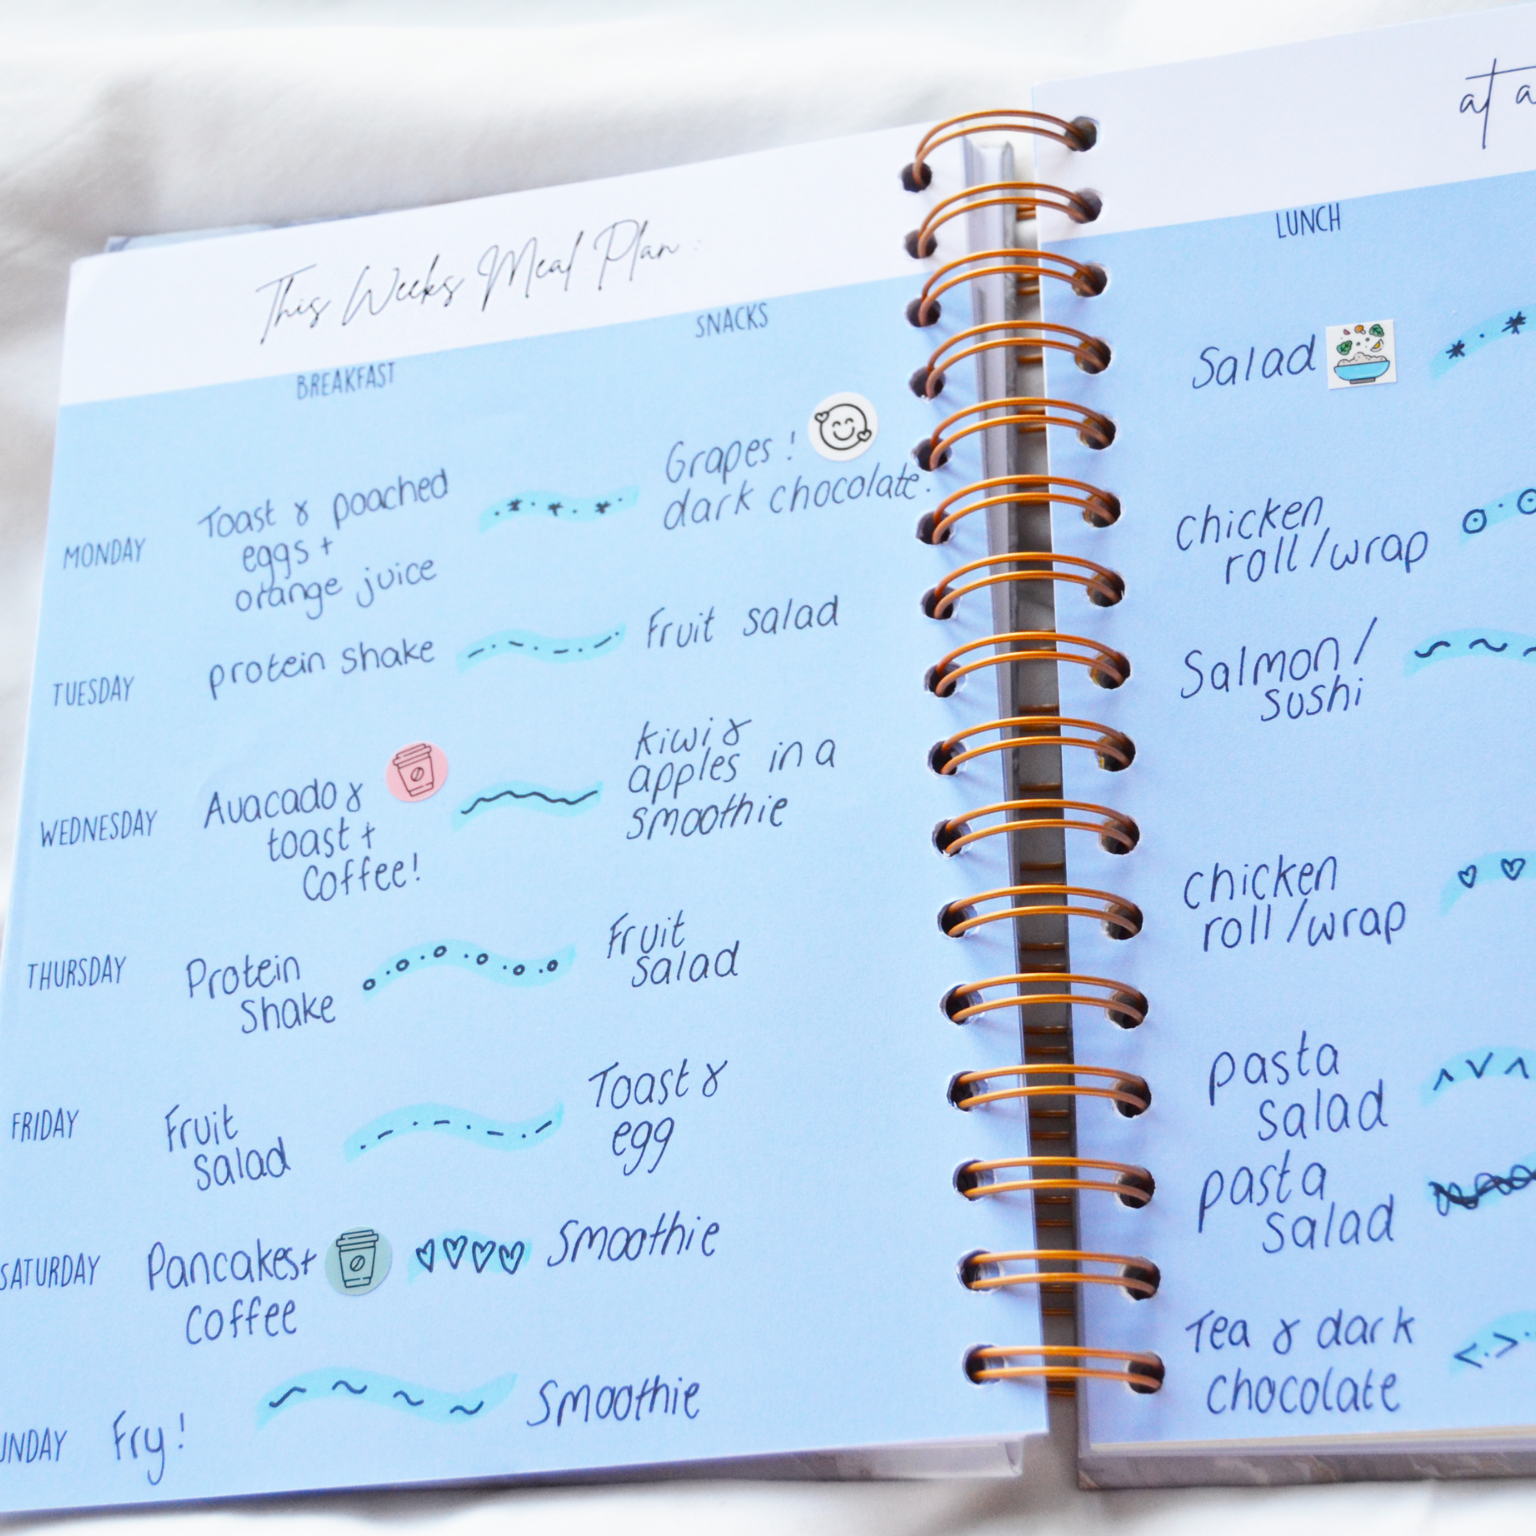 This Weeks Meal Plan:
BREAKFAST
SNACKS
MONDAY
Toast & poached
eggs +
orange juice
Grapes!
dark chocolate.
TUESDAY
protein shake
Fruit salad
WEDNESDAY
Avacado &
toast +
Coffee!
kiwi &
apples in a
smoothie
THURSDAY
Protein
Shake
Fruit
Salad
FRIDAY
Fruit
Salad
Toast &
egg
SATURDAY
Pancakes +
coffee
Smoothie
UNDAY
Fry!
Smoothie
at a
LUNCH
Salad
chicken
roll/wrap
Salmon/
sushi
chicken
roll/wrap
pasta
salad
pasta
salad
Tea & dark
chocolate